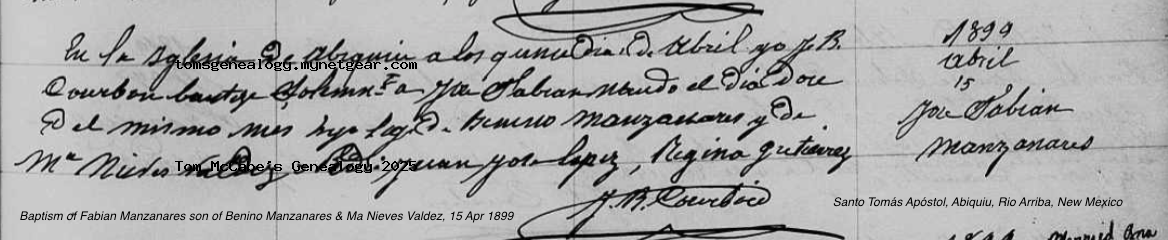 En la Iglesia de Abiquiu a los quince dias de Abril yo J. B.
Courbon bautize Solemn.te a Jose Fabian nacido el dia doce
del mismo mes hijo leg. de Benino Manzanares y de
Ma Nieves Valdez Pad. Juan Jose Lopez, Regina Gutierrez
J. B. Courbon
1899
Abril
15
Jose Fabian
Manzanares
tomsgenealogg.mynetgear.com
Tom McCabe's Genealogy 2025
Baptism of Fabian Manzanares son of Benino Manzanares & Ma Nieves Valdez, 15 Apr 1899
Santo Tomás Apóstol, Abiquiu, Rio Arriba, New Mexico
1899